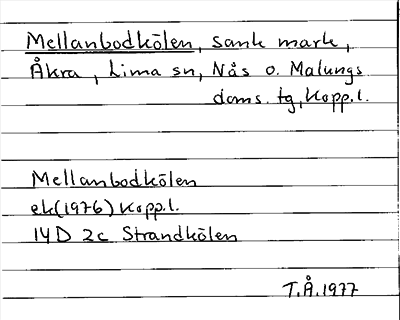 Mellanbodkölen, sank mark,
Åkra, Lima sn, Nås o. Malungs
doms. tg, Kopp.l.
Mellanbodkölen
ek(1976) Kopp.l.
14D 2c Strandkölen
T.Å.1977